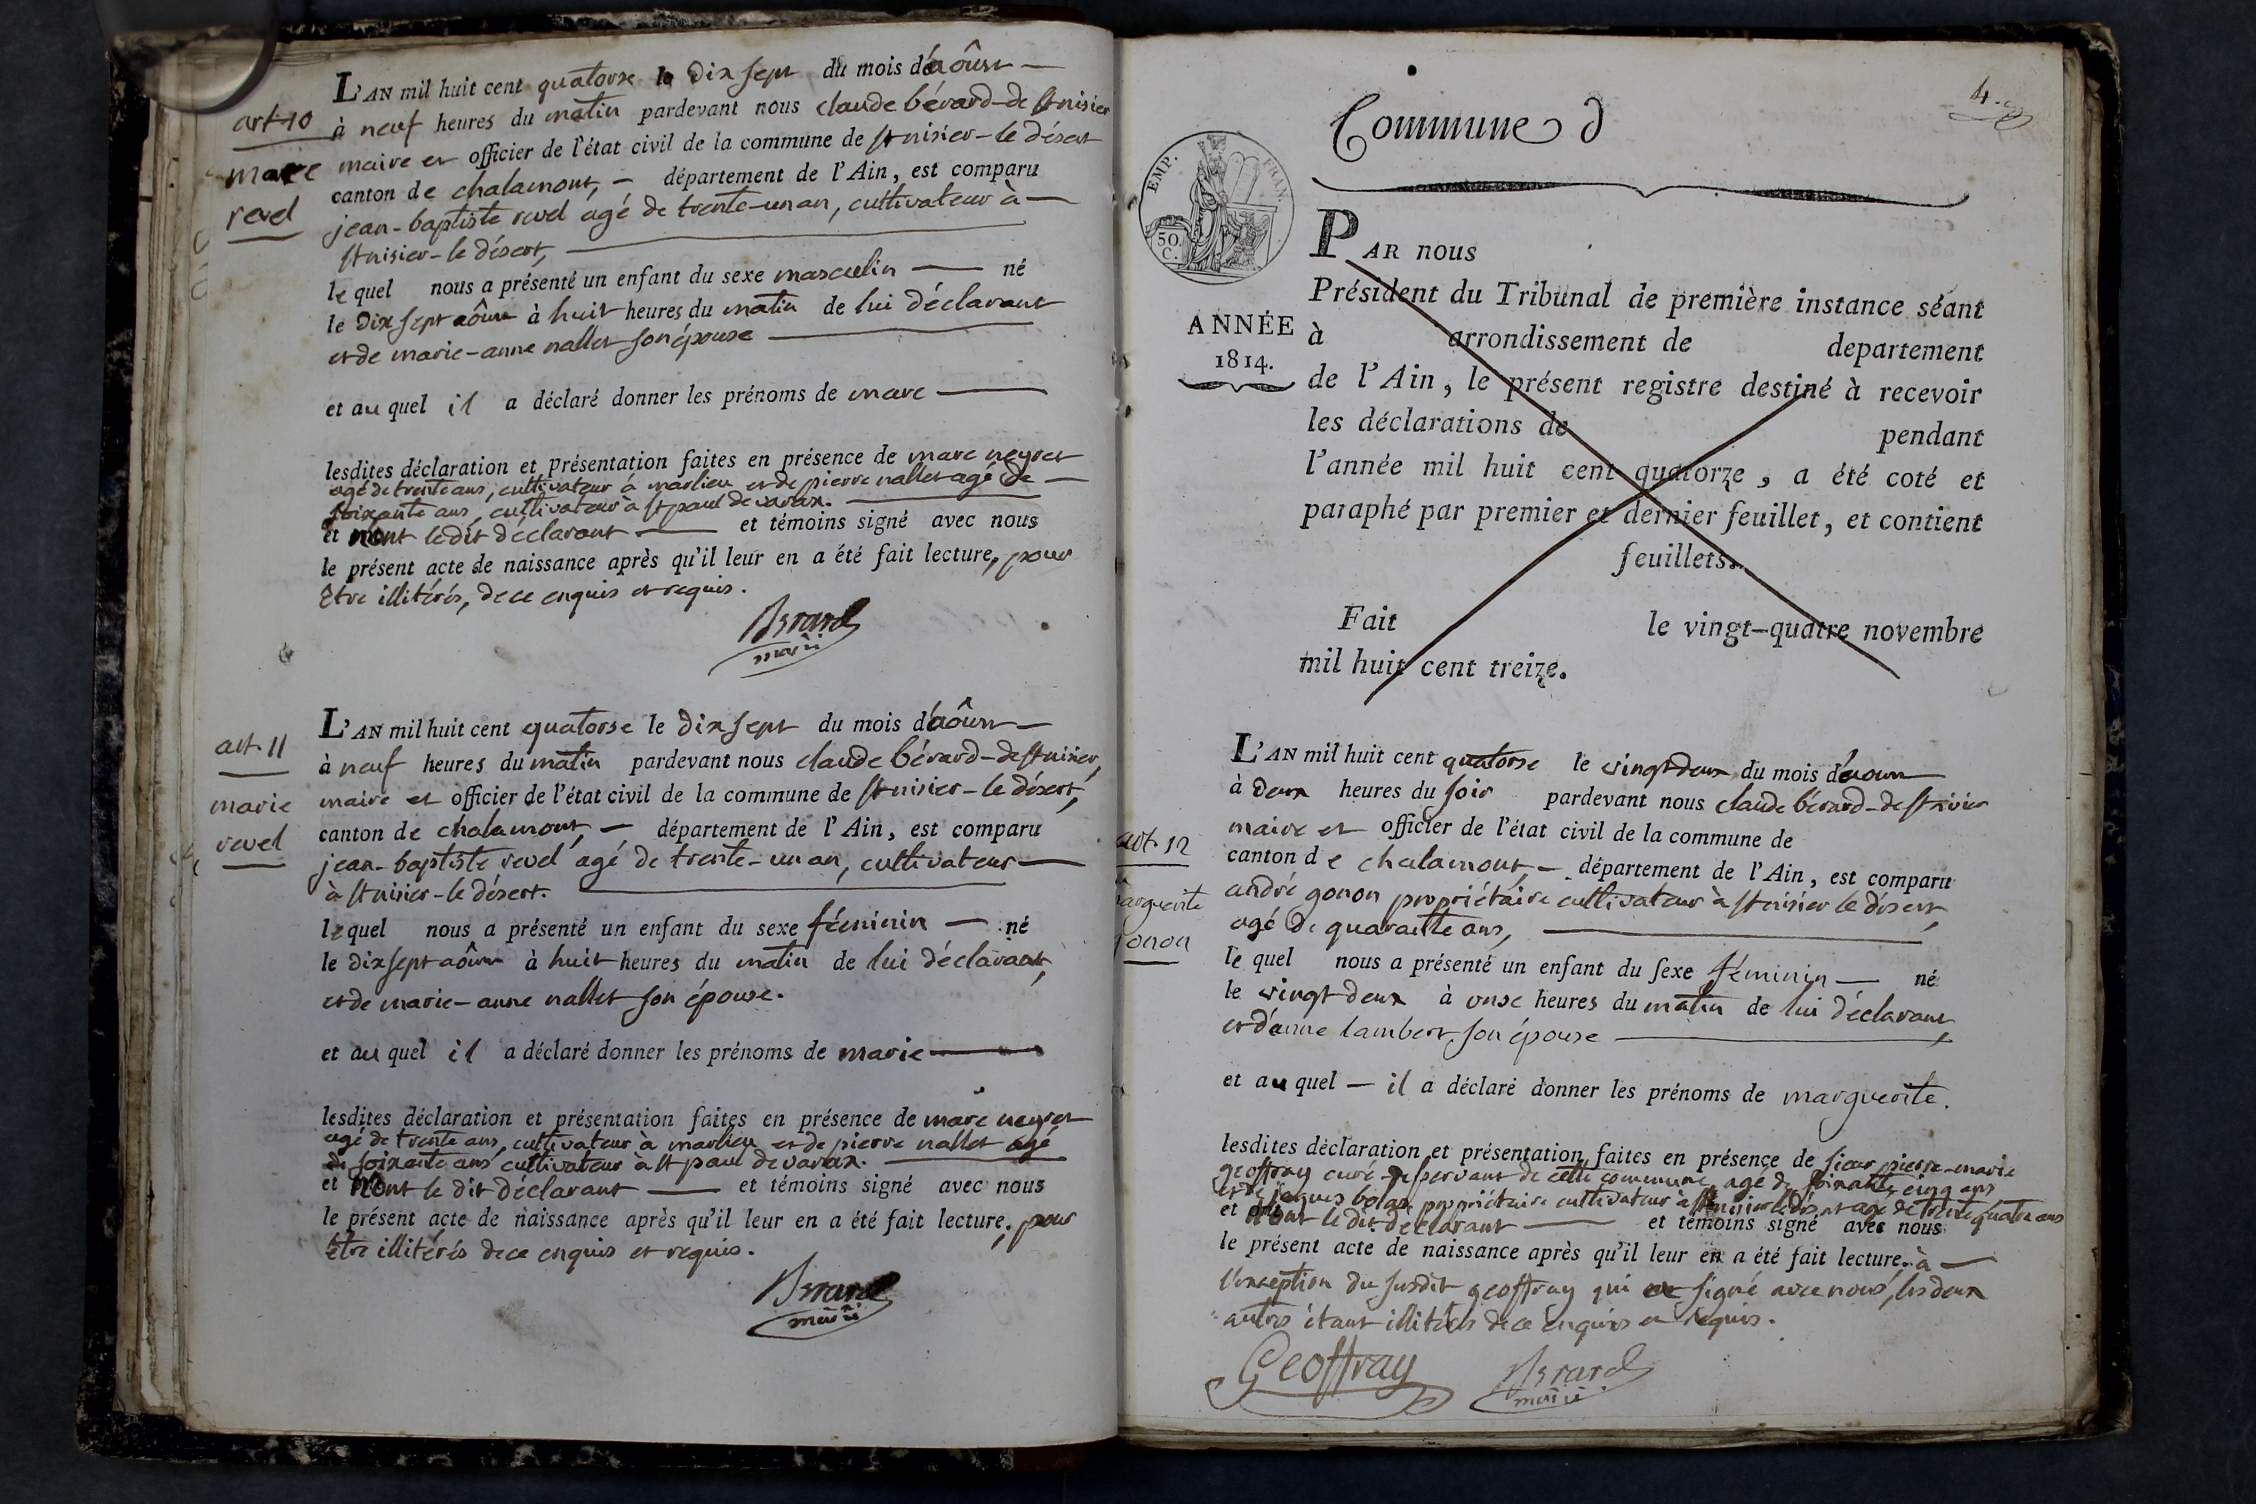 art. 10
marc
revel
L'AN mil huit cent quatorse le dix sept du mois d'aôust
à neuf heures du matin pardevant nous claude bérard-de st nisier
maire et officier de l'état civil de la commune de st nisier-le désert
canton de chalamont, département de l'Ain, est comparu
jean-baptiste revel agé de trente-un an, cultivateur à
st nisier-le désert,
lequel nous a présenté un enfant du sexe masculin né
le dix sept aôust à huit heures du matin de lui déclarant
et de marie-anne nallet son épouse
et auquel il a déclaré donner les prénoms de marc
lesdites déclaration et présentation faites en présence de marc neyret
agé de trente ans, cultivateur à marlieu et de pierre nallet agé de
soixante ans, cultivateur à st paul de varax.
et n'ont le dit déclarant et témoins signé avec nous
le présent acte de naissance après qu'il leur en a été fait lecture, pour
être illitérés, de ce enquis et requis.
Bérard
maire
art. 11
marie
revel
L'AN mil huit cent quatorse le dix sept du mois d'aôust
à neuf heures du matin pardevant nous claude bérard-de st nisier,
maire et officier de l'état civil de la commune de st nisier-le désert,
canton de chalamont, département de l'Ain, est comparu
jean-baptiste revel agé de trente-un an, cultivateur
à st nisier-le désert.
lequel nous a présenté un enfant du sexe féminin né
le dix sept aôust à huit heures du matin de lui déclarant,
et de marie-anne nallet son épouse.
et auquel il a déclaré donner les prénoms de marie
lesdites déclaration et présentation faites en présence de marc neyret
agé de trente ans, cultivateur à marlieu et de pierre nallet agé
de soixante ans cultivateur à st paul de varax.
et n'ont le dit déclarant et témoins signé avec nous
le présent acte de naissance après qu'il leur en a été fait lecture, pour
être illitérés de ce enquis et requis.
Bérard
maire
4.
Commune d
EMP. FRAN.
50. C.
ANNÉE
1814.
PAR nous
Président du Tribunal de première instance séant
à arrondissement de departement
de l'Ain, le présent registre destiné à recevoir
les déclarations de pendant
l'année mil huit cent quatorze, a été coté et
paraphé par premier et dernier feuillet, et contient
feuillets.
Fait le vingt-quatre novembre
mil huit cent treize.
art. 12
marguerite
gonon
L'AN mil huit cent quatorse le vingt deux du mois d'aoust
à deux heures du soir pardevant nous claude bérard-de st nisier
maire et officier de l'état civil de la commune de
canton de chalamont, département de l'Ain, est comparu
andré gonon propriétaire cultivateur à st nisier le désert,
agé de quarante ans,
lequel nous a présenté un enfant du sexe féminin né
le vingt deux à onse heures du matin de lui déclarant
et d'anne lambert son épouse
et auquel il a déclaré donner les prénoms de marguerite.
lesdites déclaration et présentation faites en présence de sieur pierre-marie
geoffray curé-desservant de cette commune agé de soixante cinq ans
et de jaques propriétaire cultivateur à st nisier le désert agé de trente quatre ans
et n'ont le dit déclarant et témoins signé avec nous
le présent acte de naissance après qu'il leur en a été fait lecture. à
l'exception du susdit geoffray qui signé avec nous, les deux
autres étant illitérés de ce enquis et requis.
Geoffray Bérard
maire